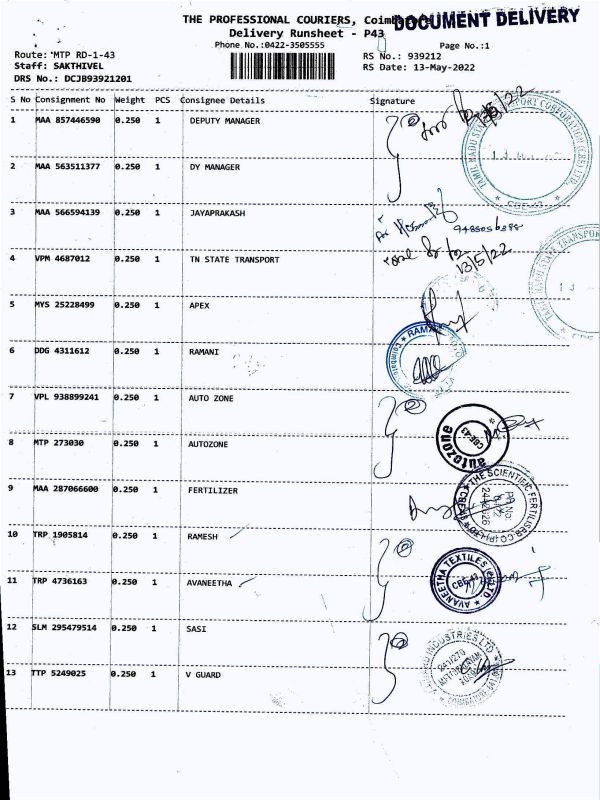 THE PROFESSIONAL COURIERS, Coimbatore
DOCUMENT DELIVERY
Delivery Runsheet - P43
Phone No.:0422-3505555
Page No.:1
Route: MTP RD-1-43
RS No.: 939212
Staff: SAKTHIVEL
RS Date: 13-May-2022
DRS No.: DCJB93921201
S No Consignment No Weight PCS Consignee Details Signature
1 MAA 857446590 0.250 1 DEPUTY MANAGER
2 MAA 563511377 0.250 1 DY MANAGER
3 MAA 566594139 0.250 1 JAYAPRAKASH
4 VPM 4687012 0.250 1 TN STATE TRANSPORT
13/5/22
5 MYS 25228499 0.250 1 APEX
6 DDG 4311612 0.250 1 RAMANI
7 VPL 938899241 0.250 1 AUTO ZONE
8 MTP 273030 0.250 1 AUTOZONE
autozone
CBE-43
9 MAA 287066600 0.250 1 FERTILIZER
THE SCIENTIFIC FERTILISER CO (P) LTD
10 TRP 1905814 0.250 1 RAMESH
11 TRP 4736163 0.250 1 AVANEETHA
AVANEETHA TEXTILES (P) LTD
CBE-43
12 SLM 295479514 0.250 1 SASI
13 TTP 5249025 0.250 1 V GUARD
INDUSTRIES LTD